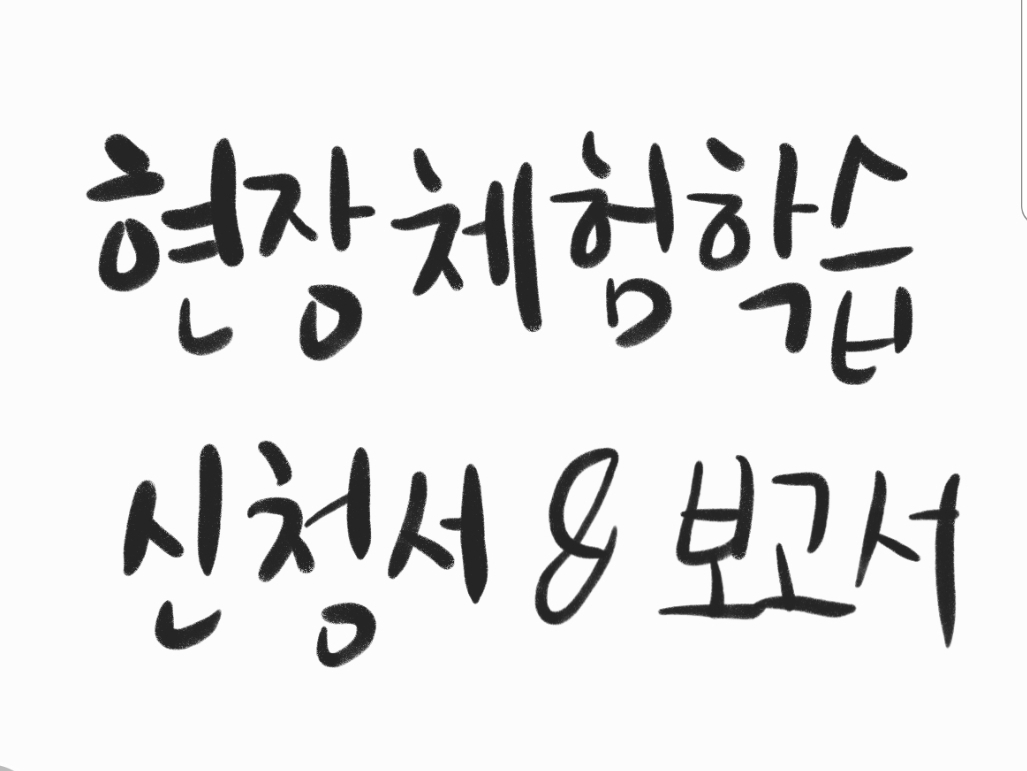 현장체험학습
신청서 & 보고서